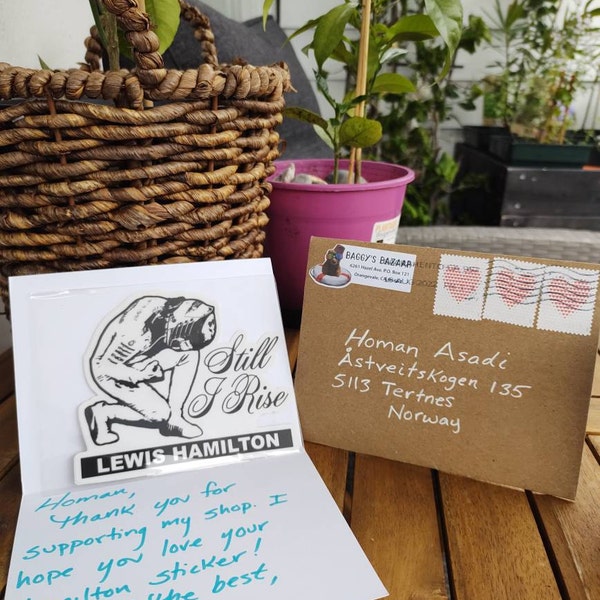 BAGGY'S BAZAAR
6261 Hazel Ave. P.O. Box 121
Orangevale, CA
Homan Asadi
Åstveitskogen 135
5113 Tertnes
Norway
Still
I Rise
LEWIS HAMILTON
Homan,
Thank you for
supporting my shop. I
hope you love your
Hamilton sticker!
the best,